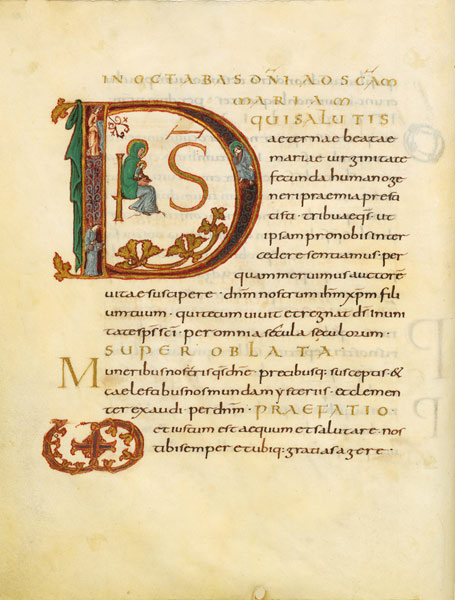 IN OCTABAS DNI AD SCAM
MARIAM
DS QUI SALUTIS
aeternae beatae
mariae virginitate
fecunda humano ge
neri praemia presti
tisti · tribuaeqs · ut
ipsam pro nobis inter
cedere sentiamus · per
quam meruimus auctorē
vitae suscipere · dnm nostrum ihm xpm fili
um tuum · qui tecum vivit et regnat ds In uni
tate sps sci · per omnia secula seculorum ·
SUPER OBLATA
Muneribus nostris qs dne precibusq; susceptis &
caelestibus nos munda mysteriis · et clemen
ter exaudi · per dnm · PRAEFATIO ·
et iustum est aequum et salutare · nos
tibi semper et ubiq; gratias agere ·